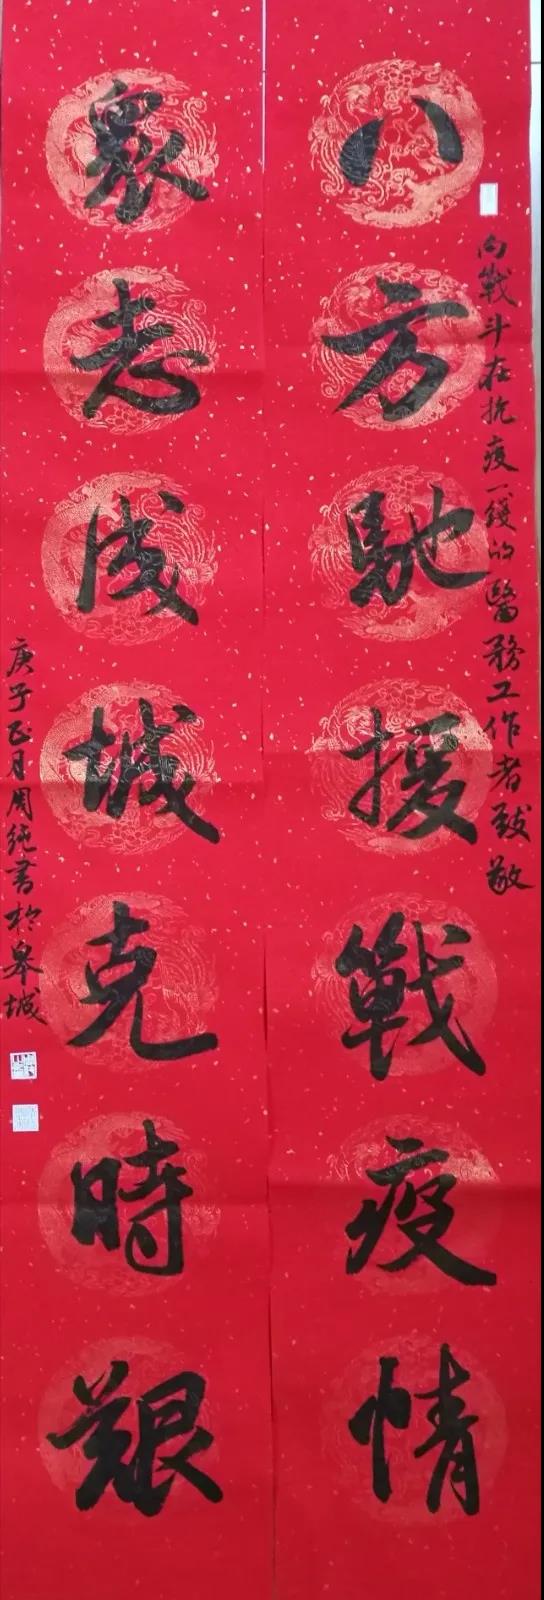 向戰斗在抗疫一綫的醫務工作者致敬
八方馳援戰疫情
衆志成城克時艱
庚子正月周純書於皋城